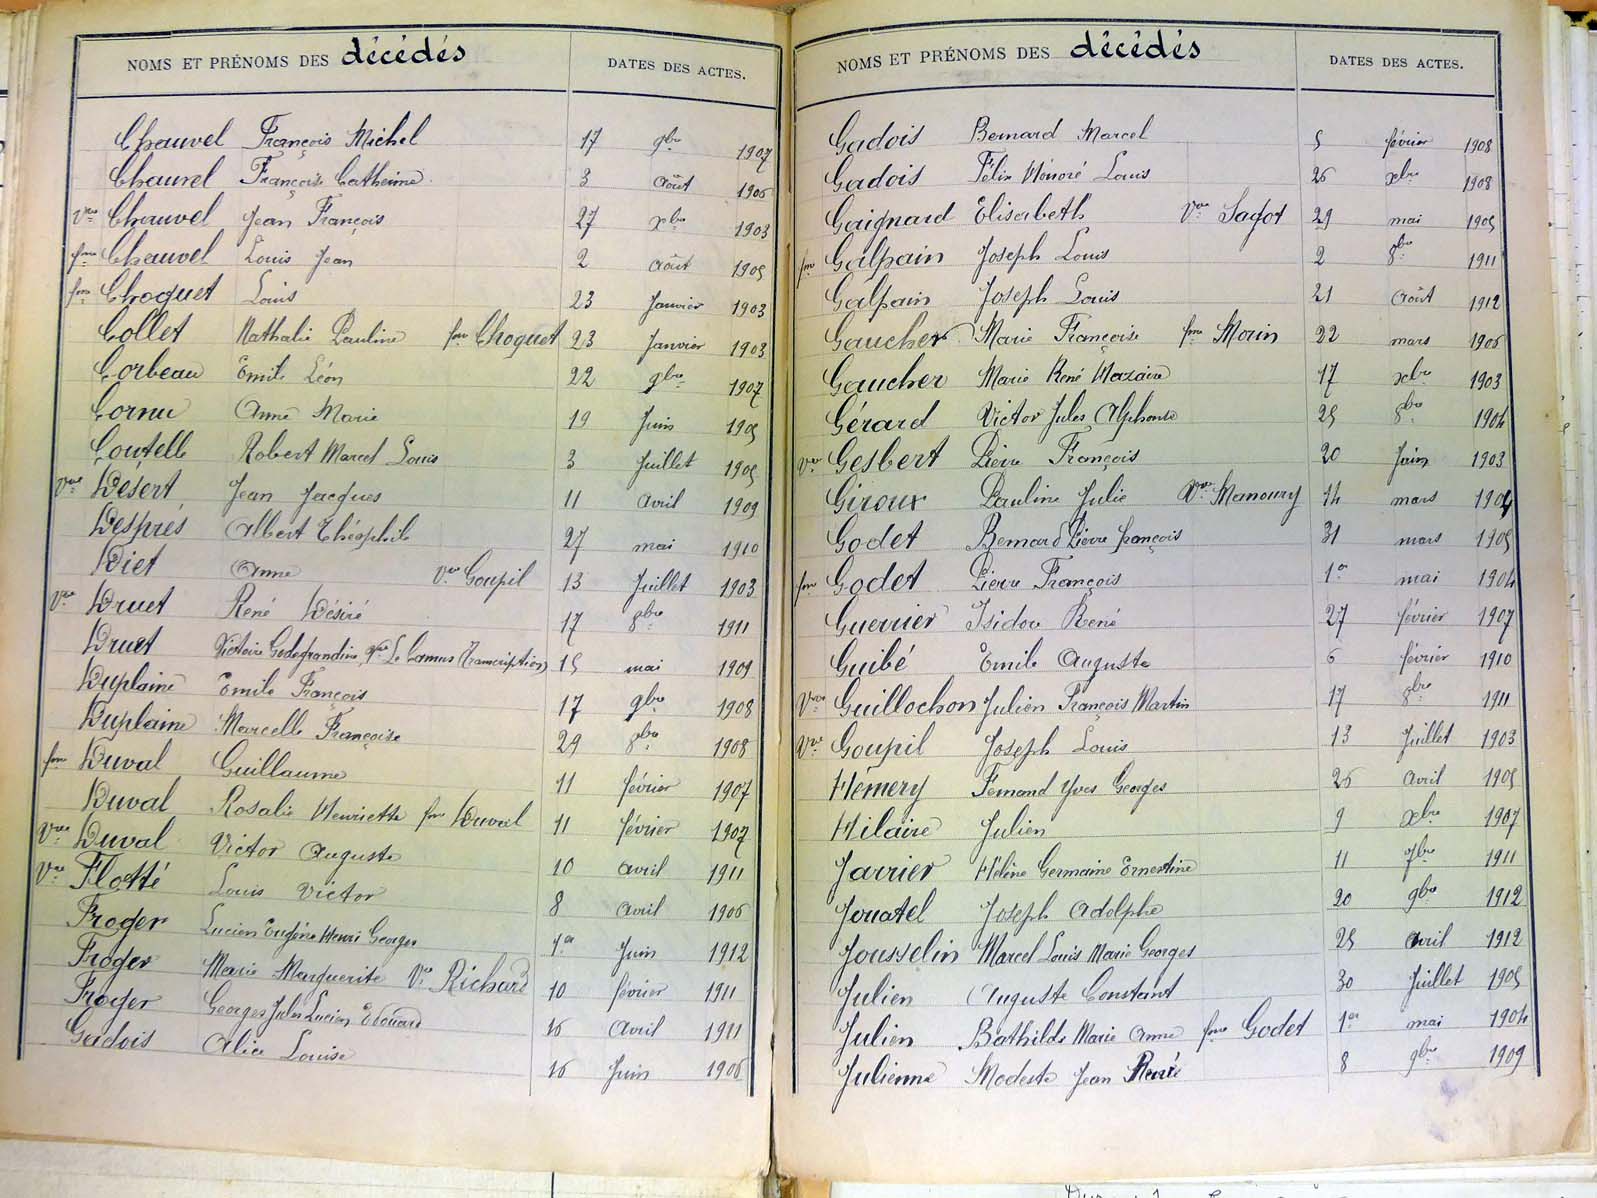 NOMS ET PRÉNOMS DES décédés DATES DES ACTES.
Chauvel François Michel 17 9bre 1907
Chauvel Françoise Catherine 3 Août 1906
Vve Chauvel Jean François 27 xbre 1903
fme Chauvel Louis Jean 2 Août 1905
fme Choquet Louis 23 Janvier 1903
Collet Nathalie Pauline fme Choquet 23 Janvier 1903
Corbeau Emile Léon 22 9bre 1907
Cornu Anne Marie 19 Juin 1905
Coutelle Robert Marcel Louis 3 Juillet 1905
Vve Désert Jean Jacques 11 avril 1909
Després Albert Théophile 27 mai 1910
Diet Anne Vve Goupil 13 Juillet 1903
Vve Druet René Désiré 17 8bre 1911
Druet Victoire Godegrandine Vve Le Camus (Transcription) 15 mai 1909
Duplaine Emile François 17 9bre 1908
Duplaine Marcelle Françoise 29 8bre 1908
fme Duval Guillaume 11 février 1907
Duval Rosalie Henriette fme Duval 11 février 1907
Vve Duval Victor Auguste 10 avril 1911
Vve Flotté Louis Victor 8 avril 1906
Froger Lucien Eugène Henri Georges 1er Juin 1912
Froger Marie Marguerite Vve Richard 10 février 1911
Froger Georges Jules Lucien Edouard 16 Avril 1911
Gadois Alice Louise 16 Juin 1906
NOMS ET PRÉNOMS DES décédés DATES DES ACTES.
Gadois Bernard Marcel 5 février 1908
Gadois Félix Honoré Louis 26 xbre 1908
Gaignard Elisabeth Vve Sagot 29 mai 1905
fme Galpain Joseph Louis 2 8bre 1911
Galpain Joseph Louis 21 Août 1912
Gaucher Marie Françoise fme Morin 22 mars 1906
Gaucher Marie René Mazaire 17 xbre 1903
Gérard Victor Jules Alphonse 25 8bre 1904
Vve Gesbert Pierre François 20 Juin 1903
Giroux Pauline Julie Vve Manoury 14 mars 1904
Godet Bernard Pierre françois 31 mars 1905
fme Godet Pierre François 1er mai 1904
Guerrier Isidore René 27 février 1907
Guibé Emile Auguste 6 février 1910
Vve Guillochon Julien François Martin 17 8bre 1911
Vve Goupil Joseph Louis 13 Juillet 1903
Hémery Fernand Yves Georges 26 avril 1905
Hilaire Julien 9 xbre 1907
Javrier Hélène Germaine Ernestine 11 7bre 1911
Jouatel Joseph Adolphe 20 9bre 1912
Jousselin Marcel Louis Marie Georges 25 avril 1912
Julien Auguste Constant 30 Juillet 1905
Julien Bathilde Marie Anne fme Godet 1er mai 1904
Julienne Modeste Jean René 8 9bre 1909